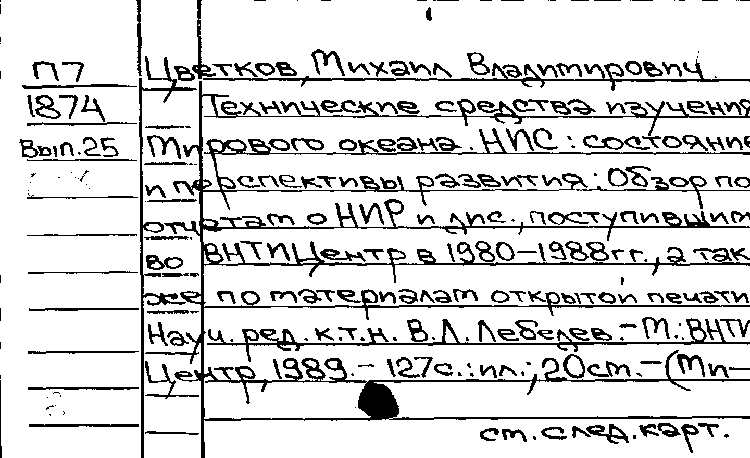 П7
1874
Вып.25
Цветков, Михаил Владимирович
Технические средства изучения
Мирового океана. НИС: состояние
и перспективы развития: Обзор по
отчетам о НИР и дис., поступившим
во ВНТИЦентр в 1980-1988гг., а так
же по материалам открытой печати
Науч. ред. к.т.н. В.Л. Лебедев.-М.: ВНТИ
Центр, 1989.- 127с.: ил.; 20см.-(Ми-
см. след. карт.